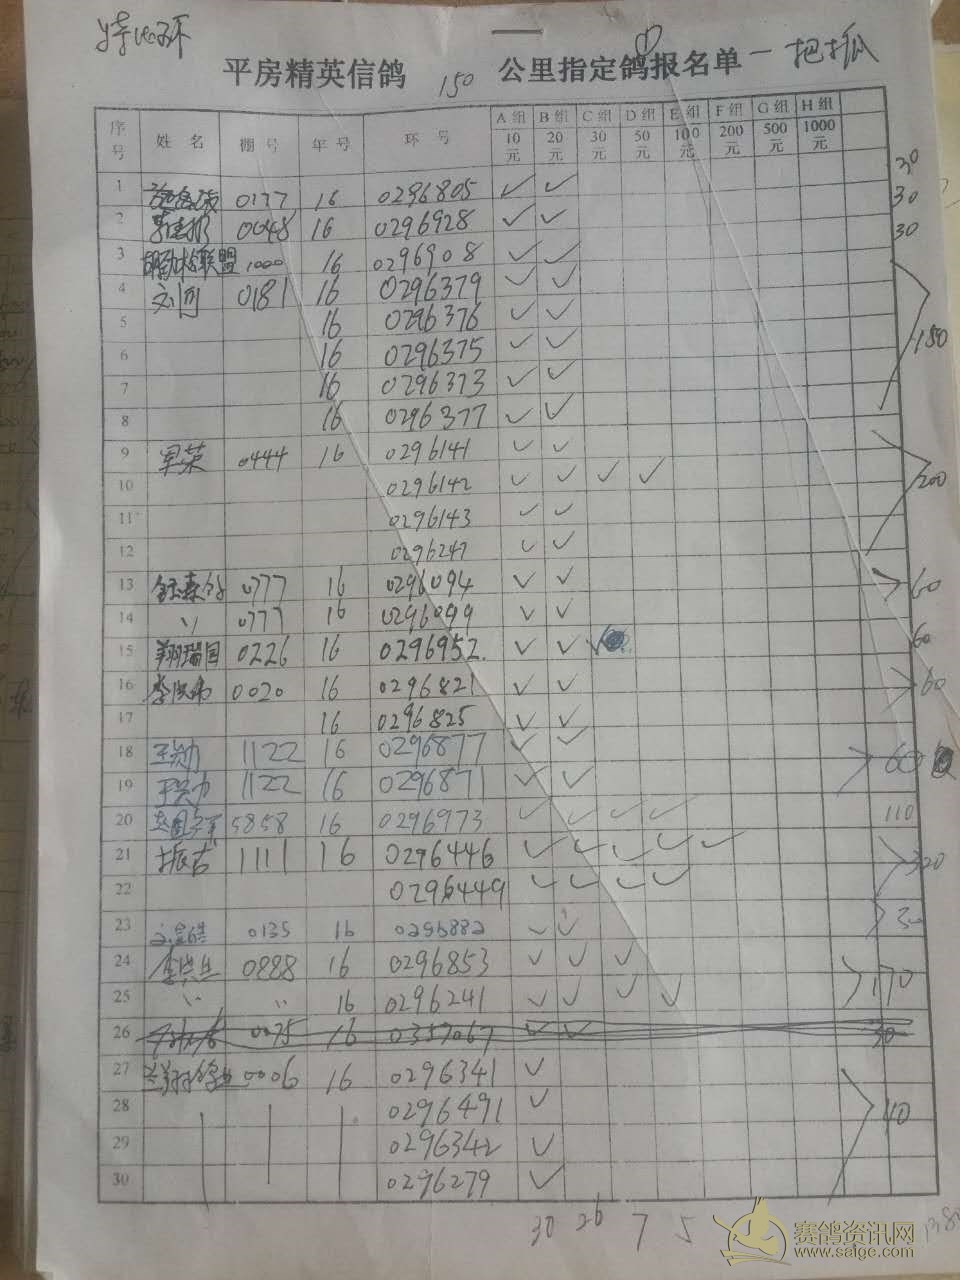 特比环
平房精英信鸽 150 公里指定鸽报名单 一把抓
序号 姓名 棚号 年号 环号 A组10元 B组20元 C组30元 D组50元 E组100元 F组200元 G组500元 H组1000元
30
1 0177 16 0296805 ✓ ✓ 30
2 0048 16 0296928 ✓ ✓ 30
3 联盟 1000 16 0296908 ✓ ✓
4 刘河 0181 16 0296379 ✓ ✓
5 16 0296376 ✓ ✓ 150
6 16 0296375 ✓ ✓
7 16 0296373 ✓ ✓
8 16 0296377 ✓ ✓
9 军荣 0444 16 0296141 ✓ ✓
10 0296142 ✓ ✓ ✓ ✓ 200
11 0296143 ✓ ✓
12 0296247 ✓ ✓
13 0777 16 0296094 ✓ ✓ 60
14 〃 0777 16 0296099 ✓ ✓
15 翔瑞国 0226 16 0296952 ✓ ✓ 60
16 0020 16 0296821 ✓ ✓ 60
17 16 0296825 ✓ ✓
18 1122 16 0296877 ✓ ✓ 60
19 1122 16 0296871 ✓ ✓
20 5858 16 0296973 ✓ ✓ ✓ ✓ 110
21 振吉 1111 16 0296446 ✓ ✓ ✓ ✓ ✓ 320
22 0296449 ✓ ✓ ✓ ✓
23 0135 16 0296882 ✓ ✓ 30
24 0888 16 0296853 ✓ ✓ ✓ 170
25 〃 〃 16 0296241 ✓ ✓ ✓ ✓
26 0075 16 0357067 ✓ ✓ 30
27 0006 16 0296341 ✓
28 0296491 ✓ 40
29 0296342 ✓
30 0296279 ✓
30 26 7 5
赛鸽资讯网
www.saige.com